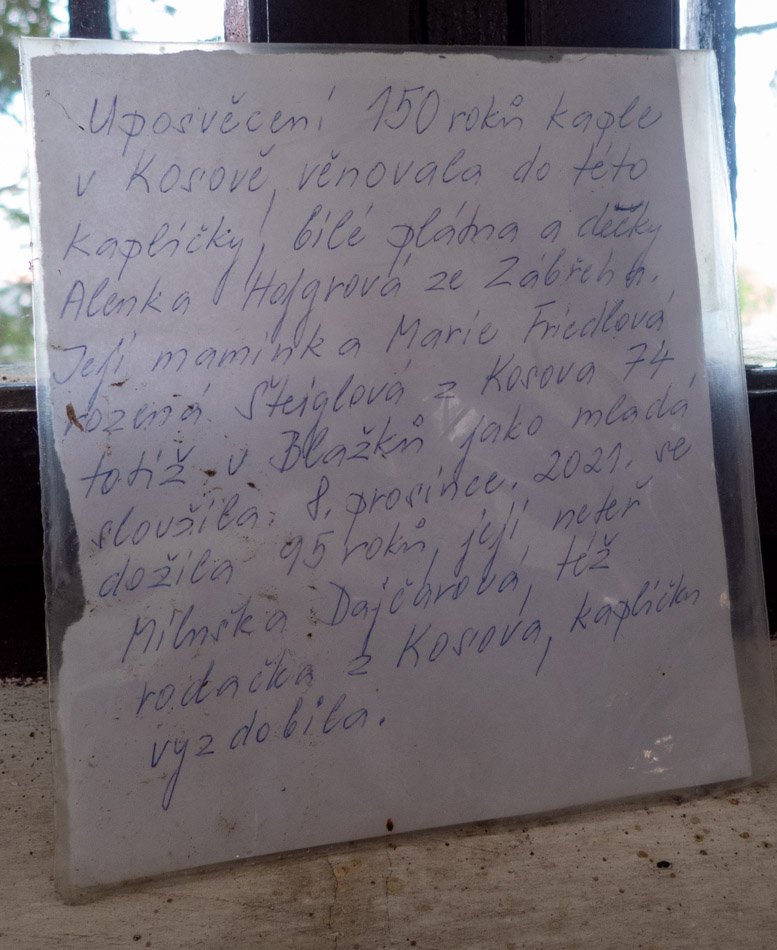 Uposvěcení 150 roků kaple
v Kosově, věnovala do této
kapličky, bílé plátna a dečky
Alenka Hojgrová ze Zábřeha.
Její maminka Marie Friedlová
rozená Šteiglová z Kosova 74
totiž u Blažků jako mladá
sloužila. 8. prosince. 2021. se
dožila 95 roků, její neteř
Miluška Dajčarová, též
rodačka z Kosova, kapličku
vyzdobila.